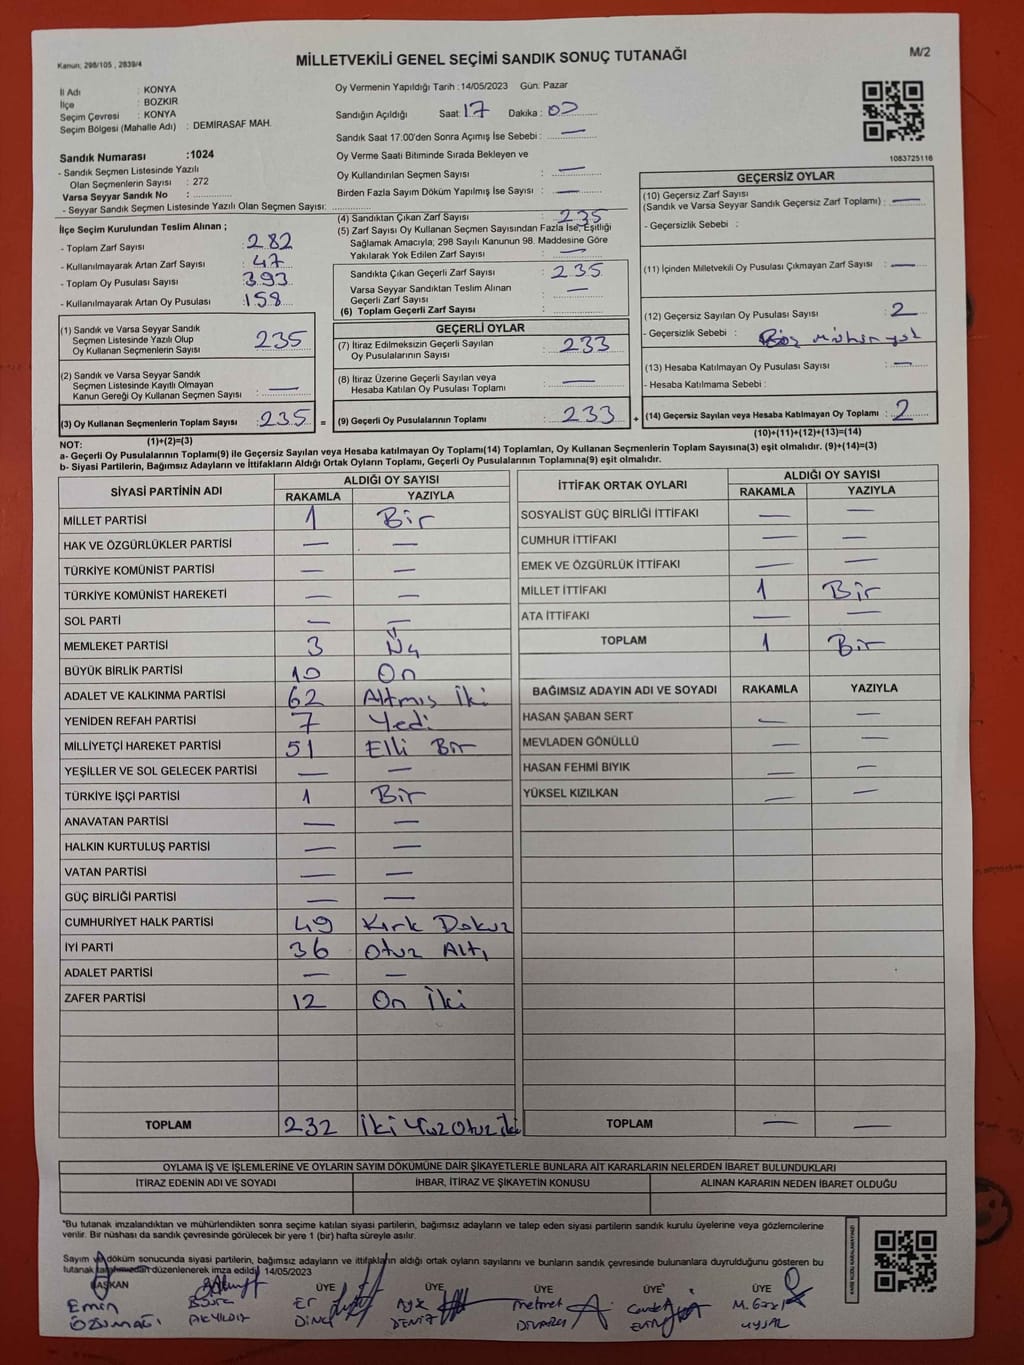 Kanun; 298/105 , 2839/4
MİLLETVEKİLİ GENEL SEÇİMİ SANDIK SONUÇ TUTANAĞI
M/2
İl Adı : KONYA
İlçe : BOZKIR
Seçim Çevresi : KONYA
Seçim Bölgesi (Mahalle Adı) : DEMİRASAF MAH.
Oy Vermenin Yapıldığı Tarih : 14/05/2023 Gün: Pazar
Sandığın Açıldığı Saat: 17 Dakika : 00
Sandık Saat 17.00'den Sonra Açımış İse Sebebi : —
Oy Verme Saati Bitiminde Sırada Bekleyen ve
Oy Kullandırılan Seçmen Sayısı : —
Birden Fazla Sayım Döküm Yapılmış İse Sayısı : —
1083725116
Sandık Numarası :1024
- Sandık Seçmen Listesinde Yazılı
Olan Seçmenlerin Sayısı : 272
Varsa Seyyar Sandık No :
- Seyyar Sandık Seçmen Listesinde Yazılı Olan Seçmen Sayısı:
İlçe Seçim Kurulundan Teslim Alınan ;
- Toplam Zarf Sayısı : 282
- Kullanılmayarak Artan Zarf Sayısı : 47
- Toplam Oy Pusulası Sayısı : 393
- Kullanılmayarak Artan Oy Pusulası : 158
(1) Sandık ve Varsa Seyyar Sandık
Seçmen Listesinde Yazılı Olup
Oy Kullanan Seçmenlerin Sayısı : 235
(2) Sandık ve Varsa Seyyar Sandık
Seçmen Listesinde Kayıtlı Olmayan
Kanun Gereği Oy Kullanan Seçmen Sayısı : —
(3) Oy Kullanan Seçmenlerin Toplam Sayısı : 235 =
(1)+(2)=(3)
(4) Sandıktan Çıkan Zarf Sayısı : 235
(5) Zarf Sayısı Oy Kullanan Seçmen Sayısından Fazla İse, Eşitliği
Sağlamak Amacıyla, 298 Sayılı Kanunun 98. Maddesine Göre
Yakılarak Yok Edilen Zarf Sayısı : —
Sandıkta Çıkan Geçerli Zarf Sayısı : 235
Varsa Seyyar Sandıktan Teslim Alınan
Geçerli Zarf Sayısı : —
(6) Toplam Geçerli Zarf Sayısı :
GEÇERLİ OYLAR
(7) İtiraz Edilmeksizin Geçerli Sayılan
Oy Pusulalarının Sayısı : 233
(8) İtiraz Üzerine Geçerli Sayılan veya
Hesaba Katılan Oy Pusulası Toplamı : —
(9) Geçerli Oy Pusulalarının Toplamı : 233 +
GEÇERSİZ OYLAR
(10) Geçersiz Zarf Sayısı
(Sandık ve Varsa Seyyar Sandık Geçersiz Zarf Toplamı) : —
- Geçersizlik Sebebi :
(11) İçinden Milletvekili Oy Pusulası Çıkmayan Zarf Sayısı : —
(12) Geçersiz Sayılan Oy Pusulası Sayısı : 2
- Geçersizlik Sebebi :
(13) Hesaba Katılmayan Oy Pusulası Sayısı : —
- Hesaba Katılmama Sebebi :
(14) Geçersiz Sayılan veya Hesaba Katılmayan Oy Toplamı : 2
(10)+(11)+(12)+(13)=(14)
NOT:
a- Geçerli Oy Pusulalarının Toplamı(9) ile Geçersiz Sayılan veya Hesaba katılmayan Oy Toplamı(14) Toplamları, Oy Kullanan Seçmenlerin Toplam Sayısına(3) eşit olmalıdır. (9)+(14)=(3)
b- Siyasi Partilerin, Bağımsız Adayların ve İttifakların Aldığı Ortak Oyların Toplamı, Geçerli Oy Pusulalarının Toplamına(9) eşit olmalıdır.
SİYASİ PARTİNİN ADI ALDIĞI OY SAYISI
RAKAMLA YAZIYLA
MİLLET PARTİSİ 1 Bir
HAK VE ÖZGÜRLÜKLER PARTİSİ — —
TÜRKİYE KOMÜNİST PARTİSİ — —
TÜRKİYE KOMÜNİST HAREKETİ — —
SOL PARTİ — —
MEMLEKET PARTİSİ 3 Üç
BÜYÜK BİRLİK PARTİSİ 10 On
ADALET VE KALKINMA PARTİSİ 62 Altmış İki
YENİDEN REFAH PARTİSİ 7 Yedi
MİLLİYETÇİ HAREKET PARTİSİ 51 Elli Bir
YEŞİLLER VE SOL GELECEK PARTİSİ — —
TÜRKİYE İŞÇİ PARTİSİ 1 Bir
ANAVATAN PARTİSİ — —
HALKIN KURTULUŞ PARTİSİ — —
VATAN PARTİSİ — —
GÜÇ BİRLİĞİ PARTİSİ — —
CUMHURİYET HALK PARTİSİ 49 Kırk Dokuz
İYİ PARTİ 36 Otuz Altı
ADALET PARTİSİ — —
ZAFER PARTİSİ 12 On İki
TOPLAM 232 İki Yüz Otuz İki
İTTİFAK ORTAK OYLARI ALDIĞI OY SAYISI
RAKAMLA YAZIYLA
SOSYALİST GÜÇ BİRLİĞİ İTTİFAKI — —
CUMHUR İTTİFAKI — —
EMEK VE ÖZGÜRLÜK İTTİFAKI — —
MİLLET İTTİFAKI 1 Bir
ATA İTTİFAKI — —
TOPLAM 1 Bir
BAĞIMSIZ ADAYIN ADI VE SOYADI RAKAMLA YAZIYLA
HASAN ŞABAN SERT — —
MEVLADEN GÖNÜLLÜ — —
HASAN FEHMİ BIYIK — —
YÜKSEL KIZILKAN — —
TOPLAM — —
OYLAMA İŞ VE İŞLEMLERİNE VE OYLARIN SAYIM DÖKÜMÜNE DAİR ŞİKAYETLERLE BUNLARA AİT KARARLARIN NELERDEN İBARET BULUNDUKLARI
İTİRAZ EDENİN ADI VE SOYADI İHBAR, İTİRAZ VE ŞİKAYETİN KONUSU ALINAN KARARIN NEDEN İBARET OLDUĞU
"Bu tutanak imzalandıktan ve mühürlendikten sonra seçime katılan siyasi partilerin, bağımsız adayların ve talep eden siyasi partilerin sandık kurulu üyelerine veya gözlemcilerine
verilir. Bir nüshası da sandık çevresinde görülecek bir yere 1 (bir) hafta süreyle asılır.
Sayım ve döküm sonucunda siyasi partilerin, bağımsız adayların ve ittifakların aldığı ortak oyların sayılarını ve bunların sandık çevresinde bulunanlara duyrulduğunu gösteren bu
tutanak tarafımızdan düzenlenerek imza edildi. 14/05/2023
BAŞKAN ÜYE ÜYE ÜYE ÜYE ÜYE
Emin
AKYILDIZ
DENİZ
Mehmet
UYSAL